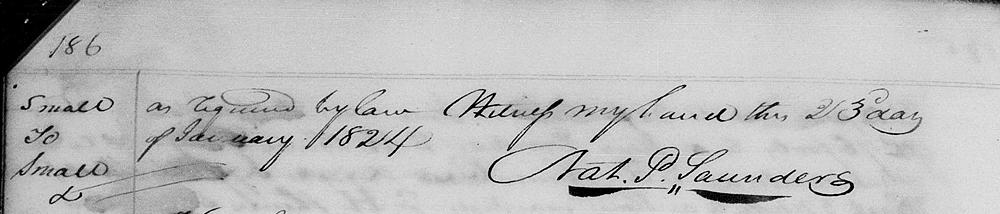 186
Small
To
Small
&
as required by law Witness my hand this 23d day
of January 1824
Nat. P. Saunders